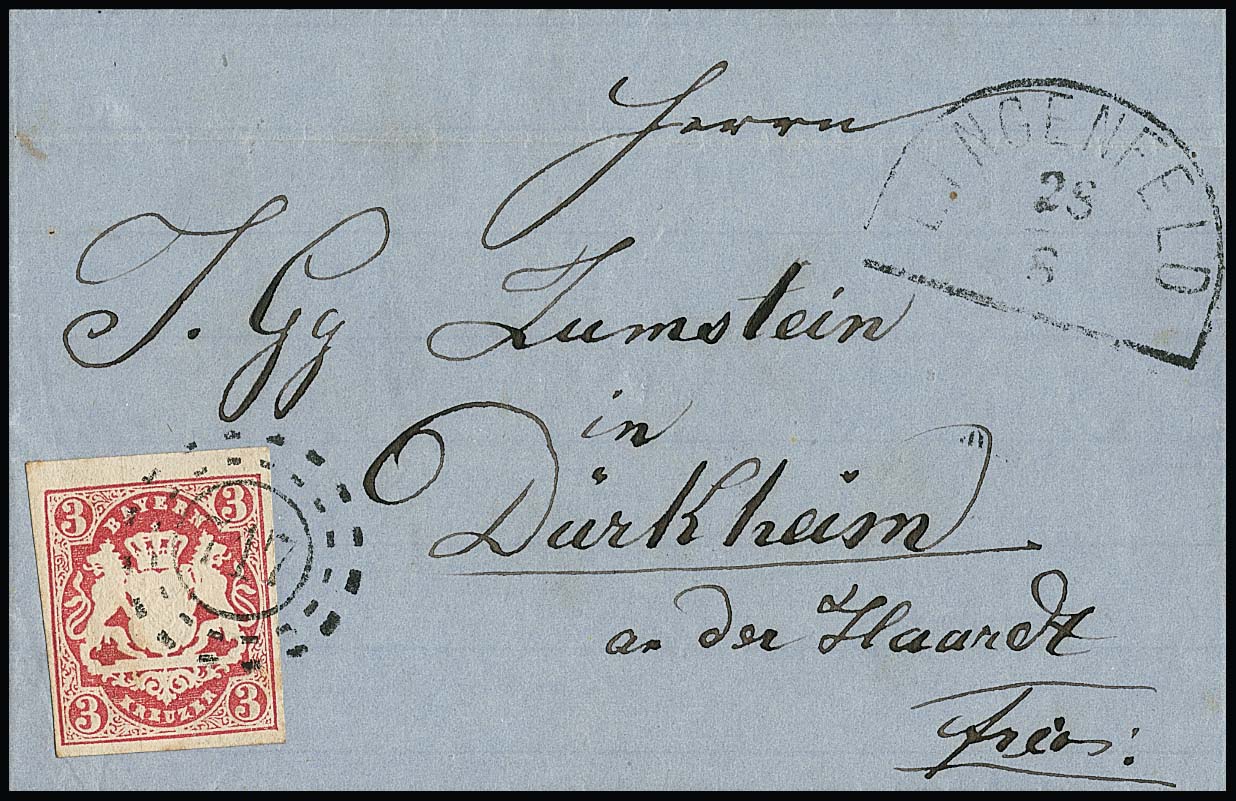 Herrn
J. Gg Zumstein
in
Dürkheim
an der Haardt
frco:
LINGENFELD
28
8
3 3
BAYERN
KREUZER
3 3